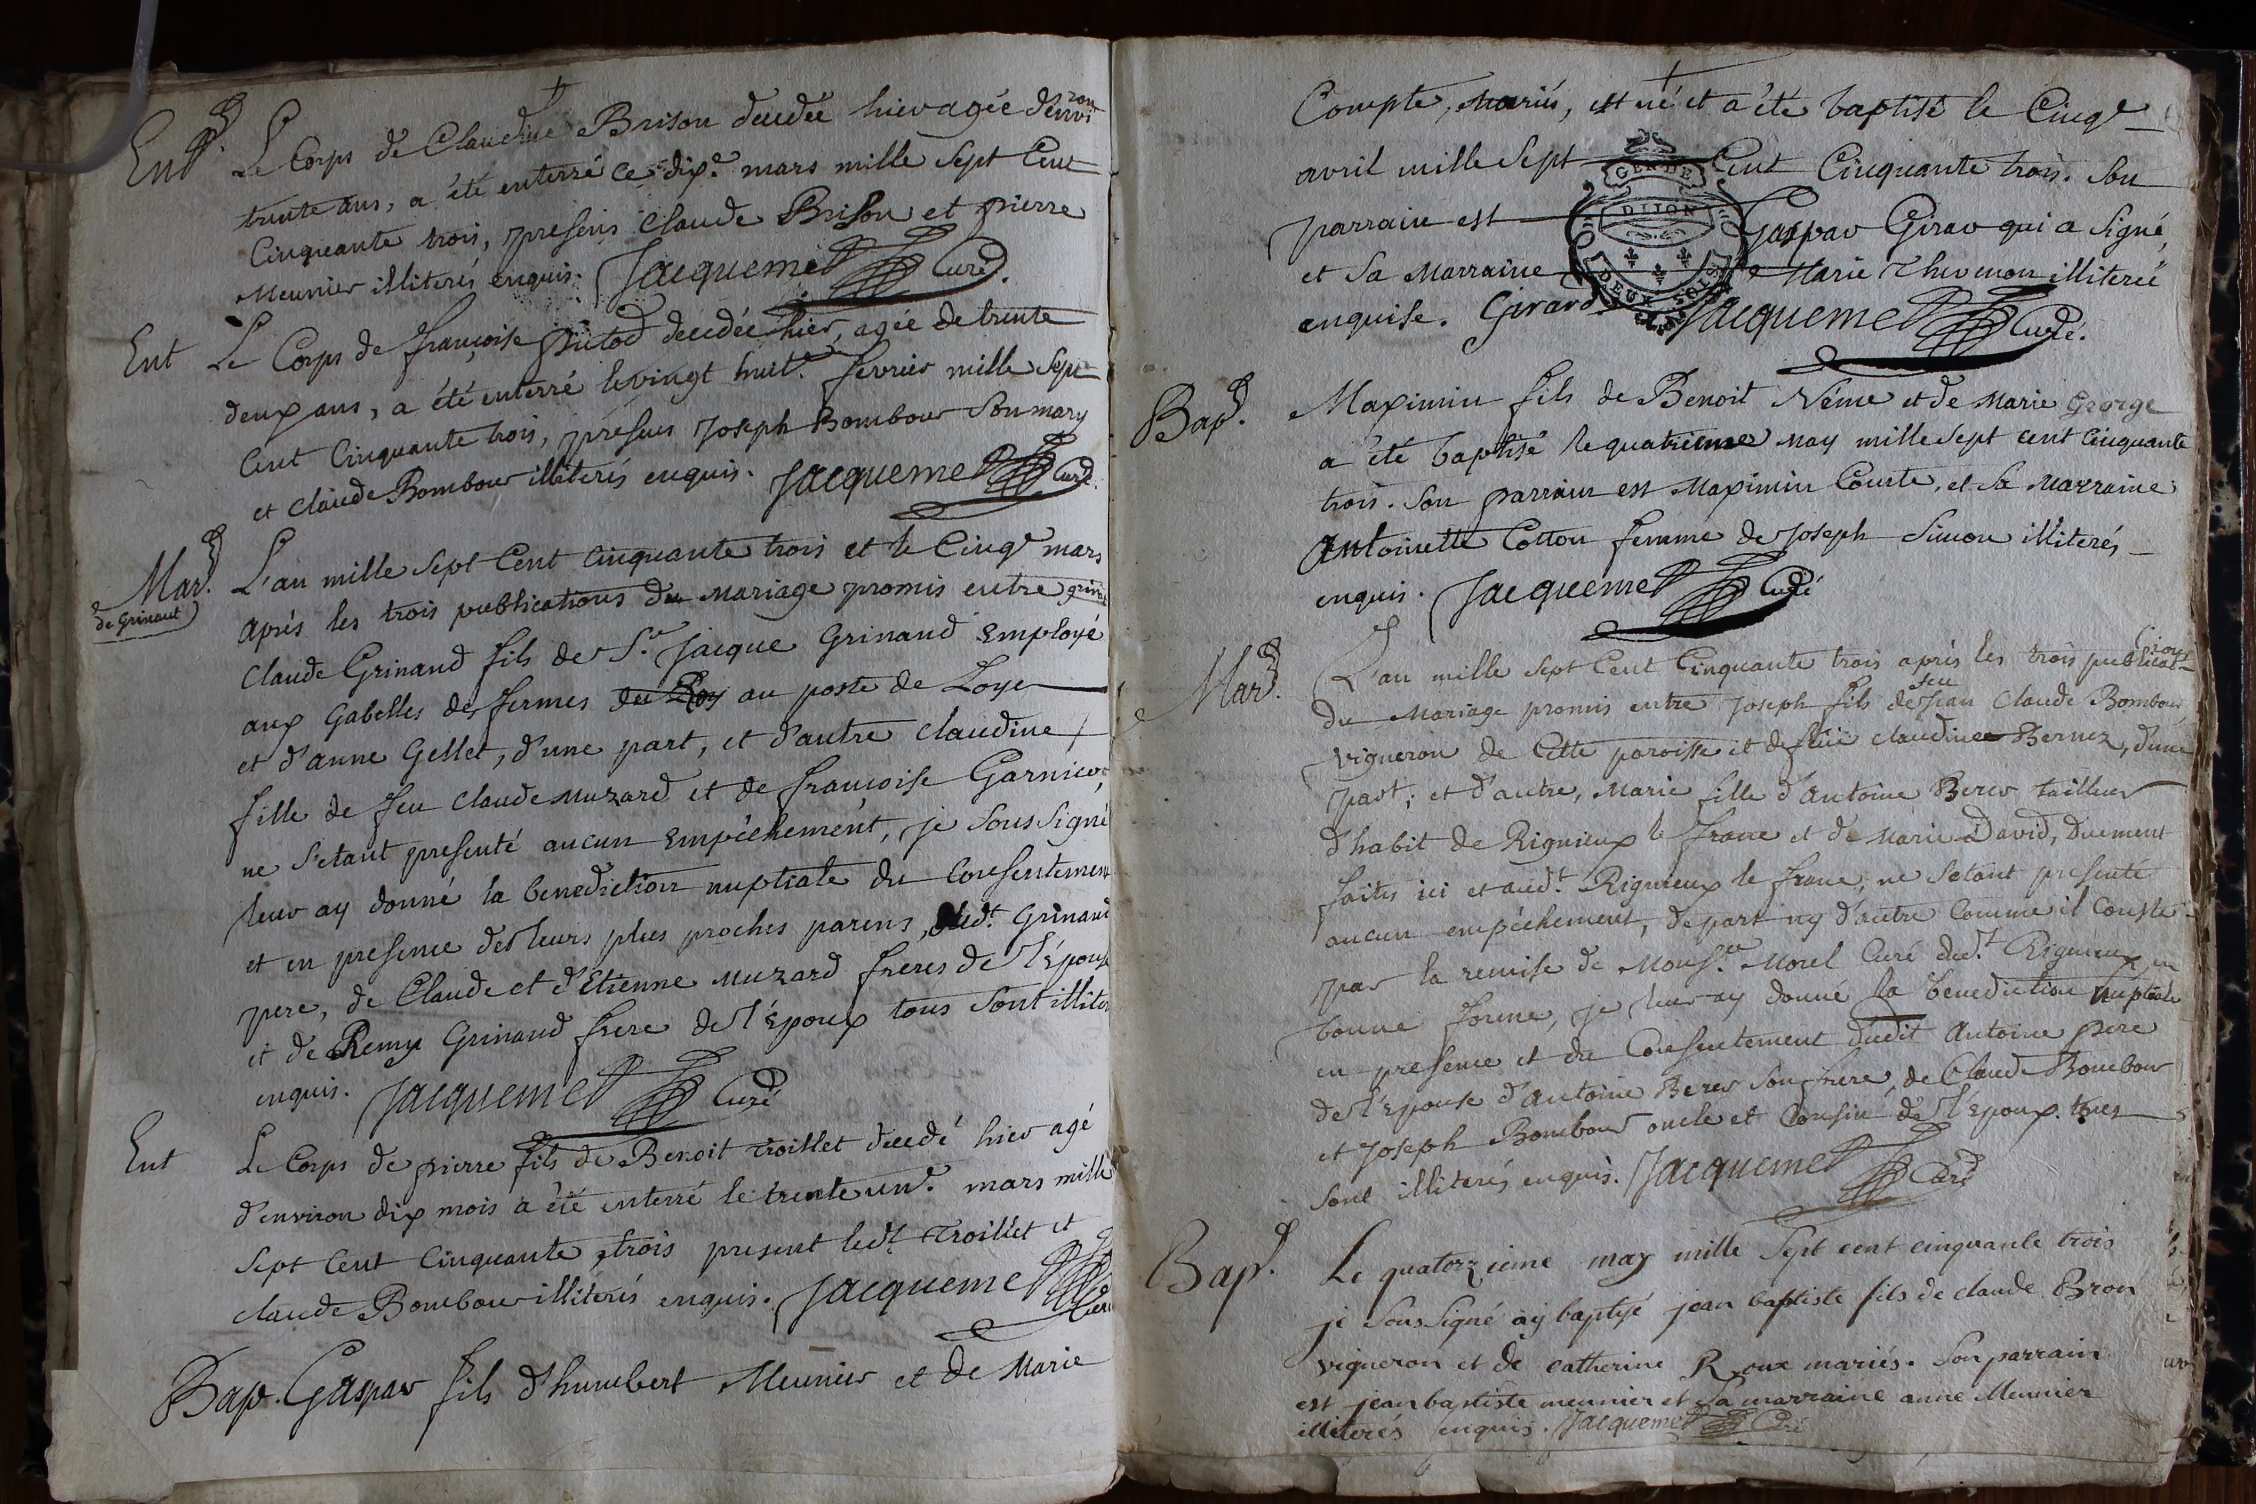 Ent. Le Corps de Claudine Brison decedée hier agée d'environ
trente ans, a été enterré ce dix.e mars mille Sept Cent
Cinquante trois, presens Claude Brison et pierre
Meunier illiterés enquis. Jacquemet Curé.
Ent Le Corps de françoise decedée hier, agée de trente
deux ans, a été enterré le vingt huit.e fevrier mille Sept
Cent Cinquante trois, presens Joseph Bombour Son mary
et Claude Bombour illiterés enquis. Jacquemet Curé.
Mar. L'an mille Sept Cent Cinquante trois et le Cinq.e mars
de Grinaut
après les trois publications du Mariage promis entre
Claude Grinand fils de S.r Jacque Grinand Employé
aux Gabelles des fermes du Roy au poste de Loye
et d'anne Gellet, d'une part, et d'autre Claudine
fille de feu Claude Muzard et de françoise Garnier,
ne S'etant presenté aucun Empêchement, je Sous Signé
leur ay donné la benediction nuptiale du Consentement
et en presence de leurs plus proches parens, dud.t Grinand
pere, de Claude et d'Etienne Muzard freres de l'Épouse
et de Remy Grinand frere de l'Époux tous Sont illiterés
enquis. Jacquemet Curé
Ent Le Corps de pierre fils de Benoit Troillet decedé hier agé
d'environ dix mois a été enterré le trente un.e mars mille
Sept Cent Cinquante trois present led.t Troillet et
Claude Bombour illiterés enquis. Jacquemet Curé
Bap. Gaspar fils d'humbert Meunier et de Marie
Compte, Mariés, est né et a été baptisé le Cinq.e
avril mille Sept Cent Cinquante trois. Son
parrain est Gaspar Girar qui a Signé,
et Sa Marraine Marie Thevenon illiterée
enquise. Girard Jacquemet Curé.
GEN DE
DIJON
DEUX SOLS
Bap. Maximin fils de Benoit Néme et de Marie George
a été baptisé le quatrieme May mille Sept cent Cinquante
trois. Son parrain est Maximin Courte, et Sa Marraine
Antoinette Cotton femme de Joseph Simon illiterés
enquis. Jacquemet Curé
Mar. L'an mille Sept Cent Cinquante trois après les trois publications
du Mariage promis entre Joseph fils de feu Jean Claude Bombour
vigneron de Cette paroisse et de füe Claudine Bernez, d'une
part; et d'autre, Marie fille d'Antoine Berer tailleur
d'habit de Rignieux le franc et de Marie David, Duement
faites ici et aud.t Rignieux le franc, ne S'etant presenté
aucun empêchement, de part ny d'autre Comme il Conste
par la remise de Mons.r Morel Curé dud.t Rignieux en
bonne forme, je leur ay donné la benediction Nuptiale
en presence et du Consentement dudit Antoine pere
de l'Epouse d'Antoine Berer Son frere, de Claude Bombour
et Joseph Bombour oncle et Cousin de l'Epoux tous
Sont illiterés enquis. Jacquemet Curé
Bap. Le quatorzieme may mille Sept cent cinquante trois
je Sous Signé ay baptisé jean baptiste fils de claude Bron
vigneron et de catherine Roux mariés. Son parrain
est jean baptiste meunier et Sa marraine anne Meunier
illiterés enquis. Jacquemet Curé